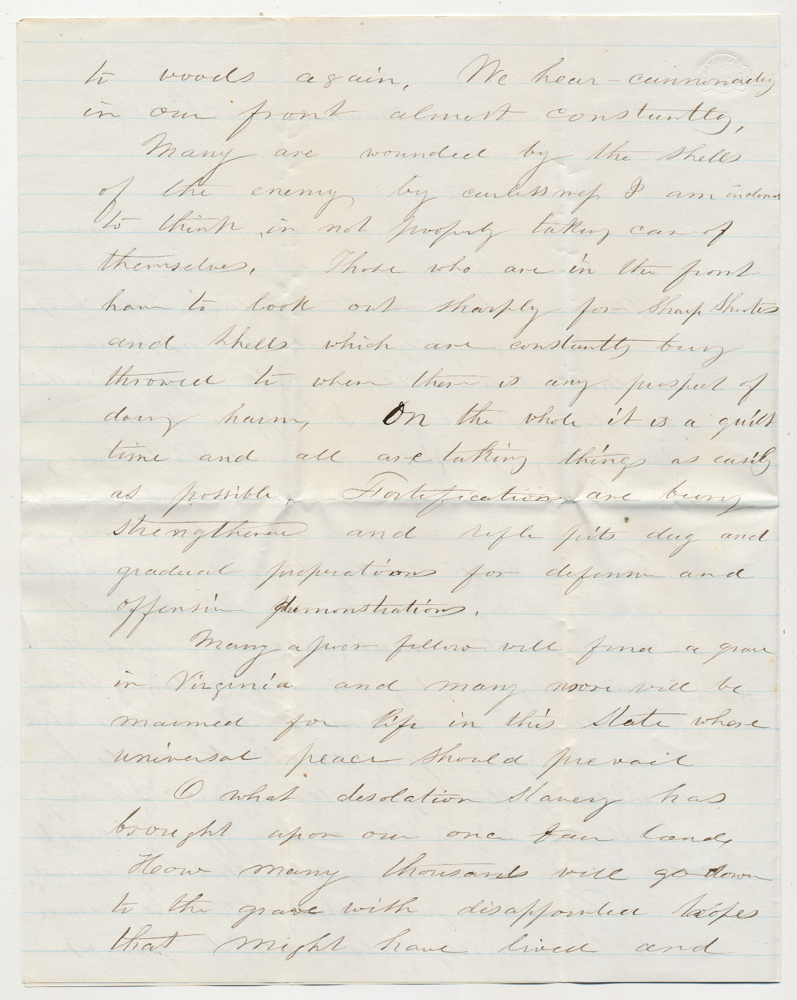 to woods again. We hear cannonading
in our front almost constantly,
Many are wounded by the shells
of the enemy by carlessness I am
to think in not properly taking care of
themselves. Those who are in the front
have to look out sharply for Sharp Shooters
and shells which are constantly being
throwed to where there is any prospect of
doing harm, On the whole it is a quiet
time and all are taking things as easily
as possible, Fortifications are being
strengthened and rifle pits dug and
gradual preperations for defense and
offensive demonstrations.
Many a poor fellow will find a grave
in Virginia and many more will be
maimed for life in this State whose
universal peace should prevail
O what desolation slavery has
brought upon our once fair land,
How many thousands will go down
to the grave with disappointed hopes
that might have lived and